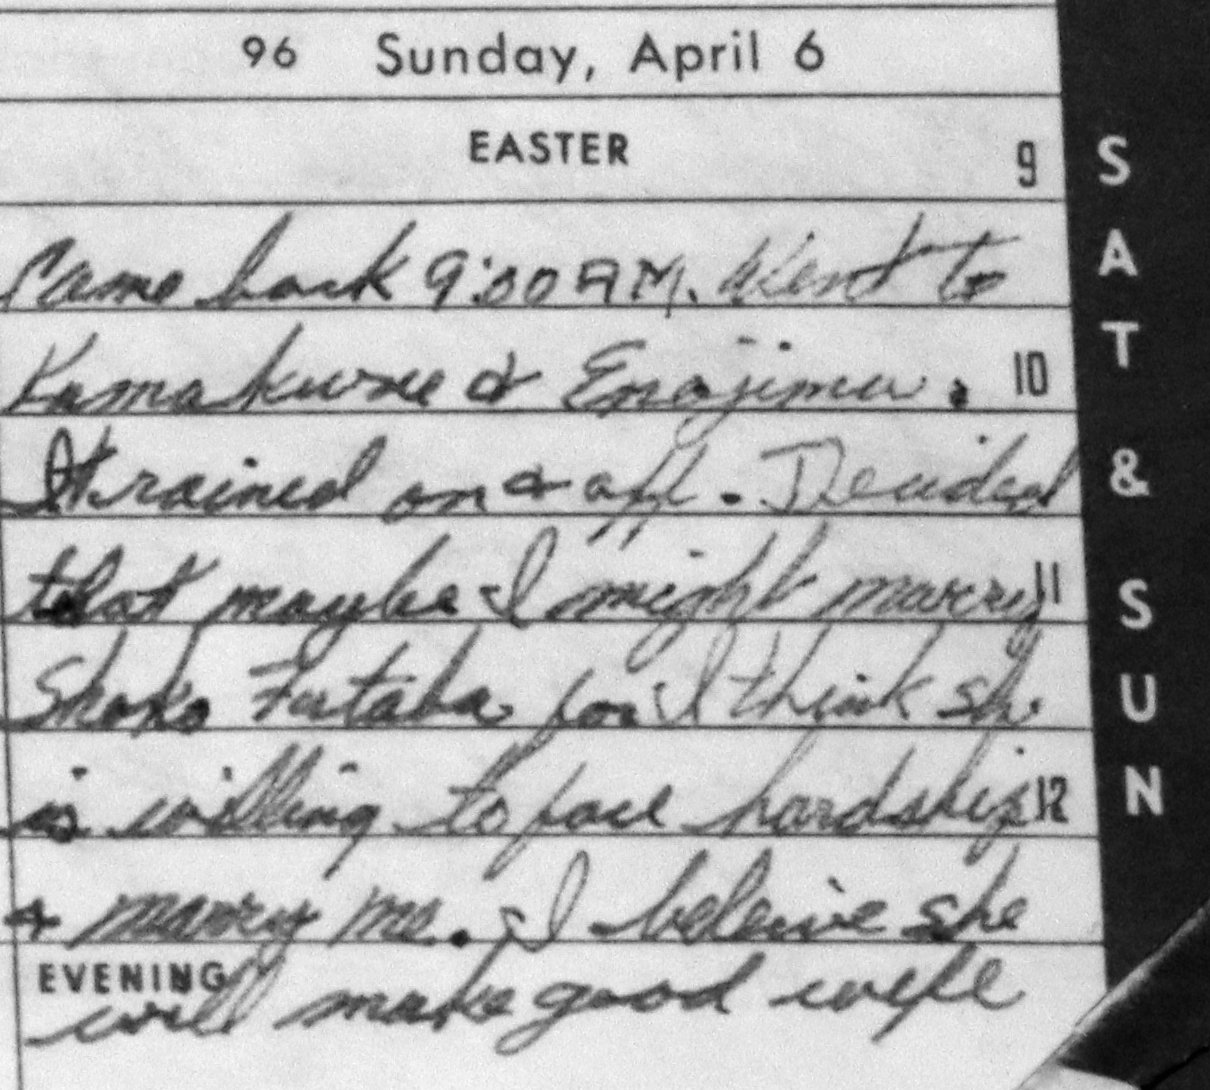 96 Sunday, April 6
EASTER
9
Came back 9:00 AM. Went to
Kamakura & Enojima. 10
It rained on & off. Decided
that maybe I might marry 11
Shoko Futaba for I think she
is willing to face hardship 12
& marry me. I beleive she
EVENING
will make good wife
SAT & SUN